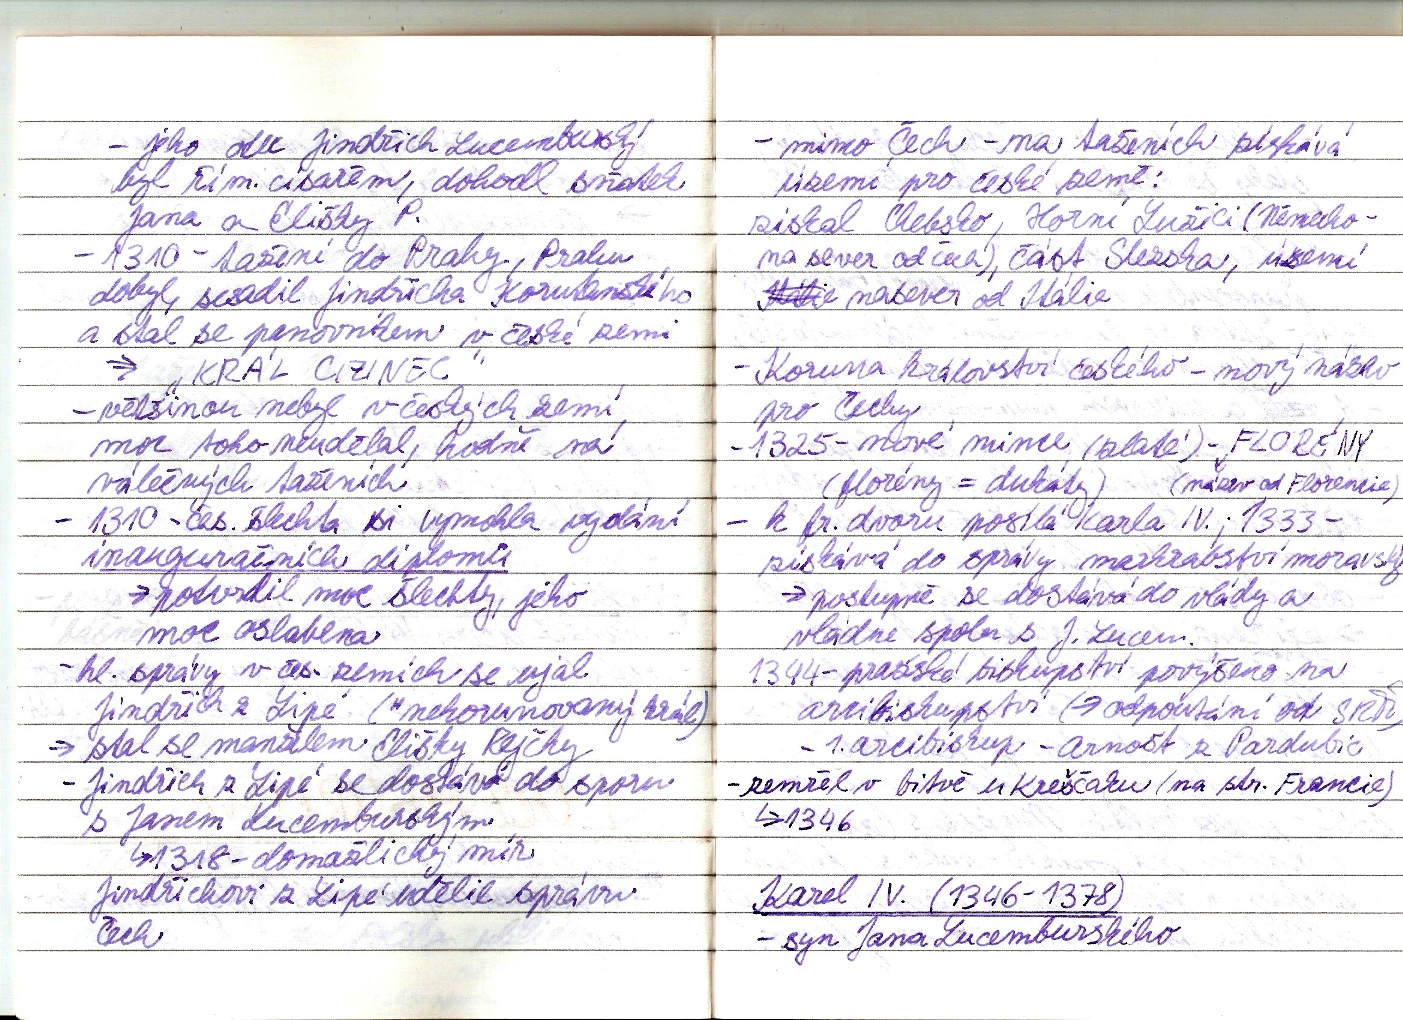 - jeho otec Jindřich Lucemburský
byl řím. císařem, dohodl sňatek
Jana a Elišky P.
- 1310 - tažení do Prahy, Prahu
dobyl, sesadil Jindřicha Korutanského
a stal se panovníkem v české zemi
⇒ „KRÁL CIZINEC"
- většinou nebyl v českých zemí,
moc toho neudělal, hodně na
válečných taženích
- 1310 - čes. šlechta si vymohla vydání
inauguračních diplomů
→ potvrdil moc šlechty, jeho
moc oslabena
- hl. správy v čes. zemích se ujal
Jindřich z Lipé ("nekorunovaný král)
→ stal se manželem Elišky Rejčky
- Jindřich z Lipé se dostává do sporu
s Janem Lucemburským
↳ 1318 - domažlický mír
Jindřichovi z Lipé udělil správu
Čech
- mimo Čech - na taženích získává
území pro české země:
získal Chebsko, Horní Lužici (Německo -
na sever od čech), část Slezska, území
na sever od Itálie
- Koruna království českého - nový název
pro Čechy
- 1325 - nové mince (zlaté) - „FLORÉNY
(florény = dukáty) (název od Florencie)
- k fr. dvoru posílá Karla IV.; 1333 -
získává do správy markrabství moravský
→ postupně se dostává do vlády a
vládne spolu s J. Lucem.
1344 - pražské biskupství povýšeno na
arcibiskupství (→ odpoutání od SŘŘ)
- 1. arcibiskup - Arnošt z Pardubic
- zemřel v bitvě u Kreščaku (na str. Francie)
↳ 1346
Karel IV. (1346 - 1378)
- syn Jana Lucemburského